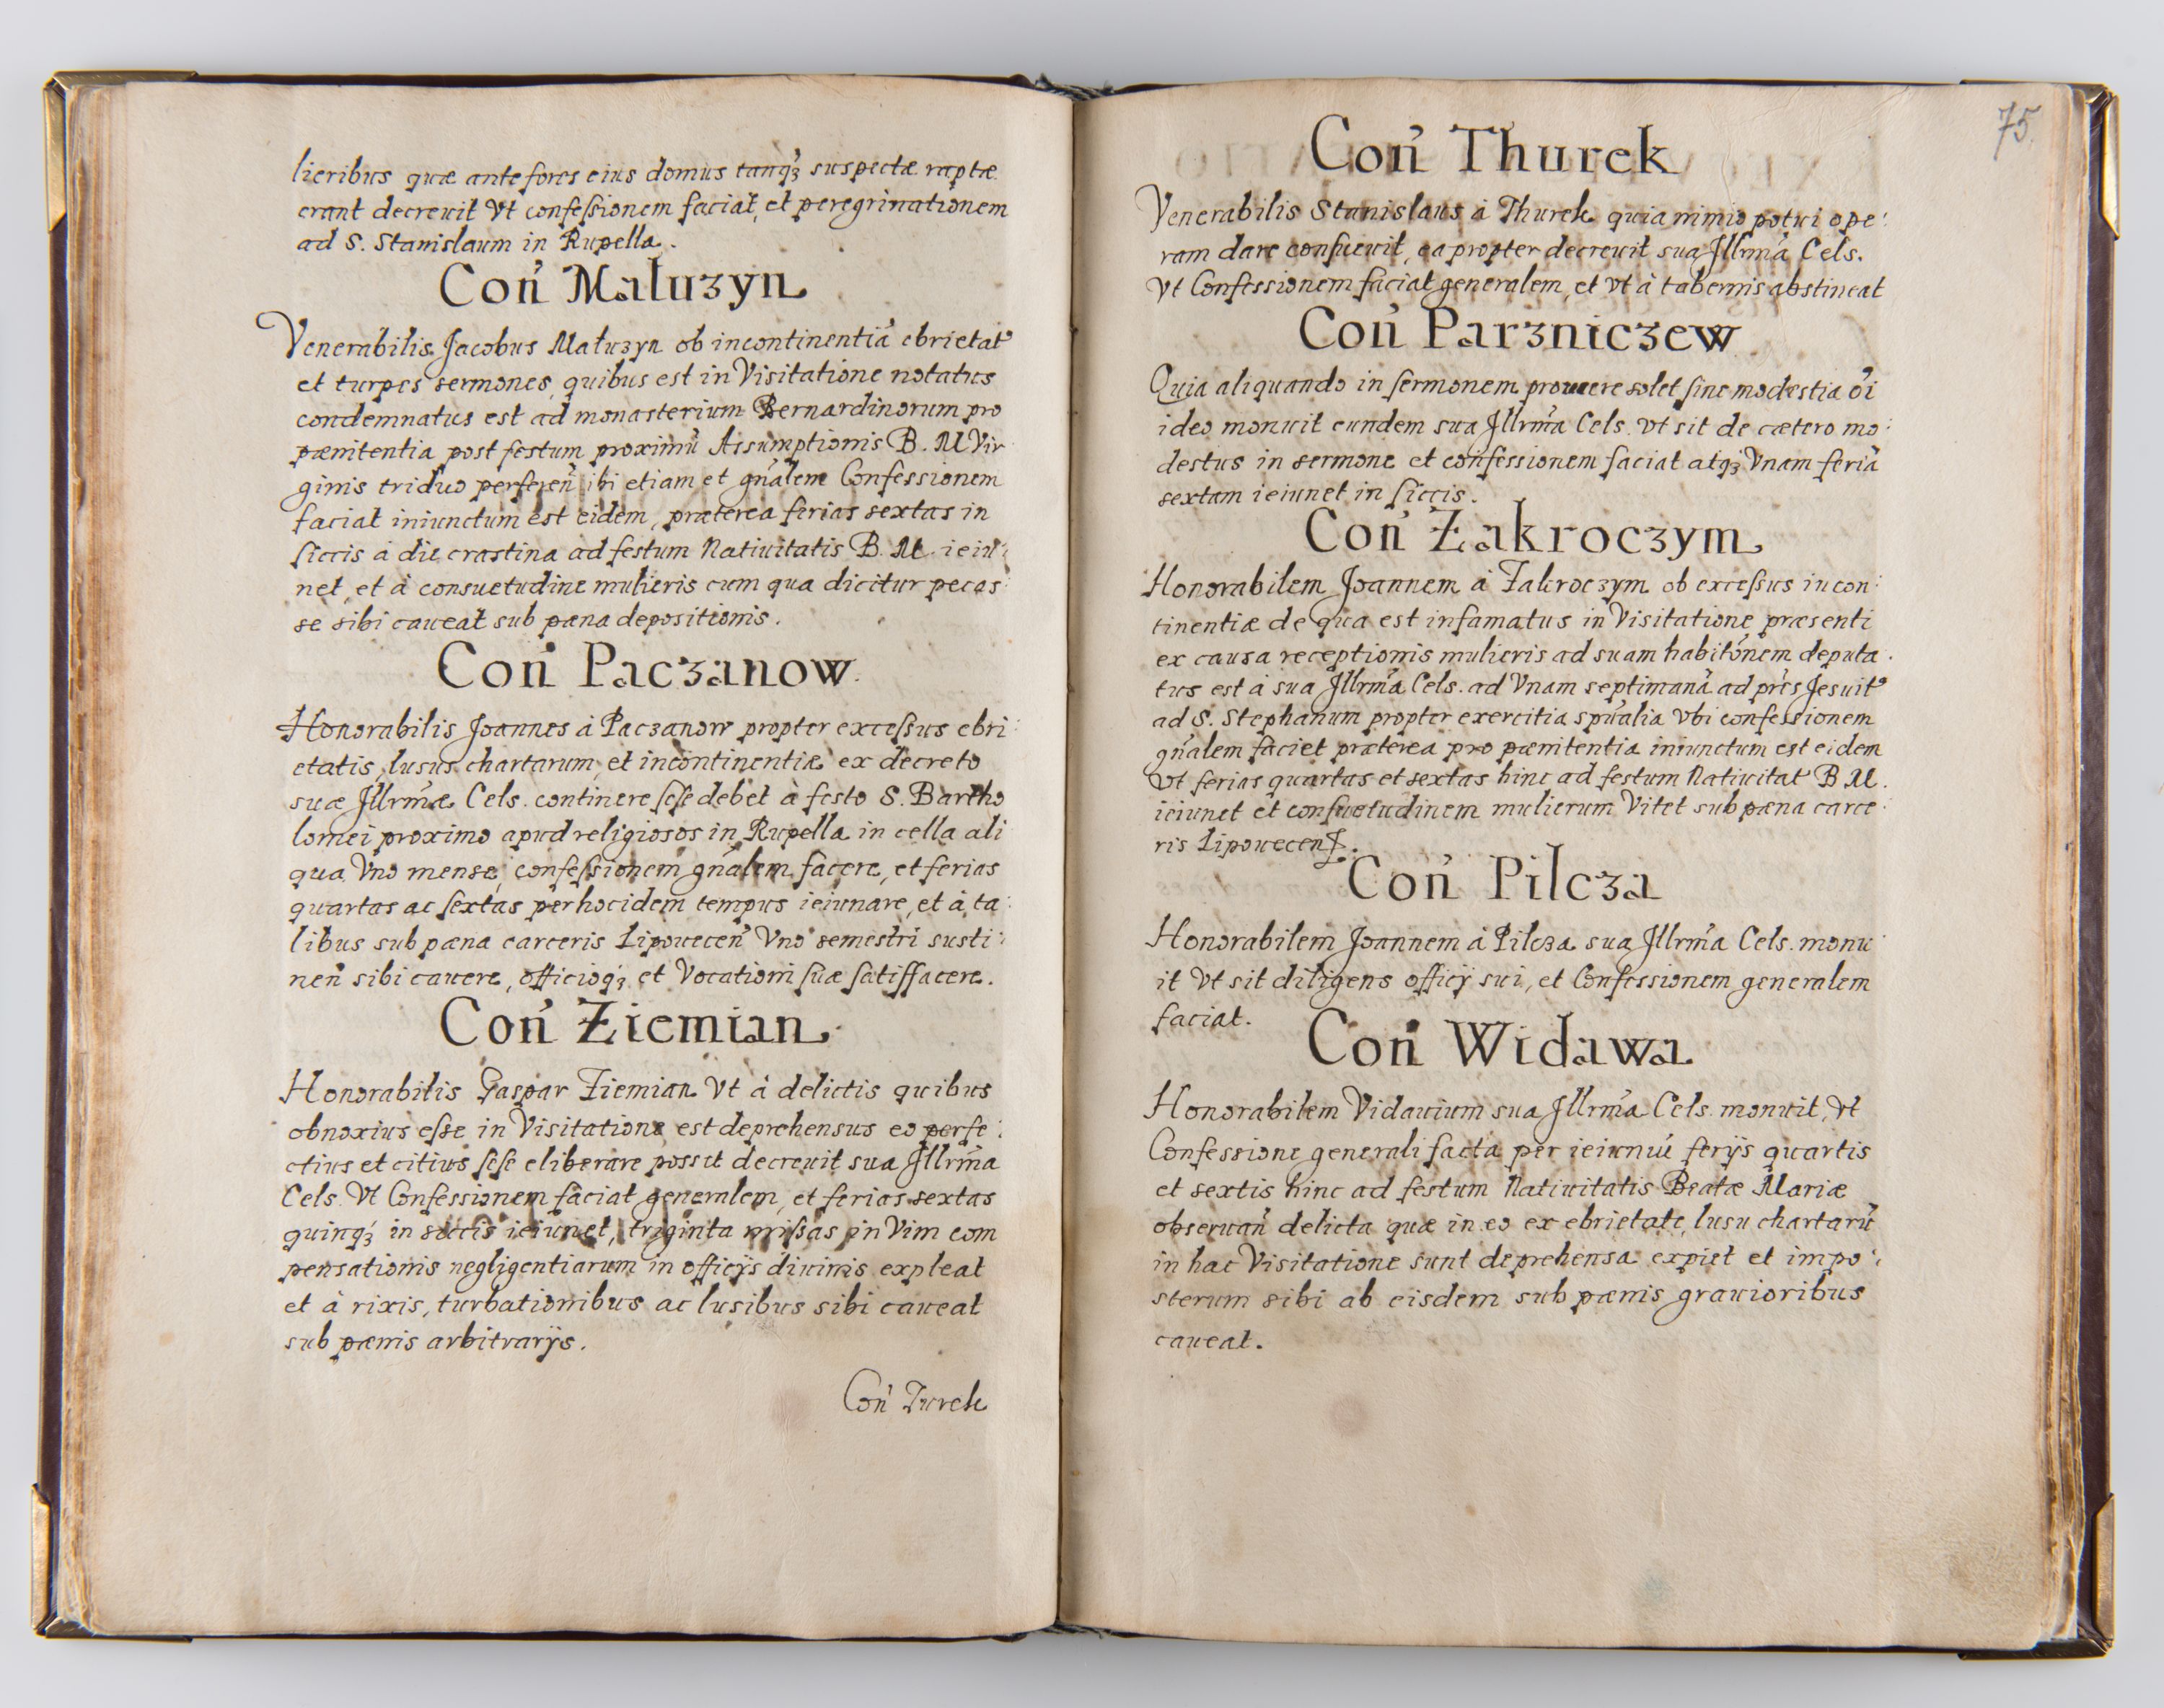 lieribus quæ ante fores eius domus tanq́ʒ suspectæ raptæ
erant decreuit Vt confeſsionem faciat, et peregrinationem
ad S. Stanislaum in Rupella.
Con̄ Maluʒyn
Venerabilis Jacobus Maluʒyn ob incontinentiā ebrietat᷒
et turpes sermones, quibus est in Visitatione notatus
condemnatus est ad monasterium Bernardinorum pro
pænitentia post festum proximū Assumptionis B. M Vir
ginis triduo perferen̄ ibi etiam et gn̄alem Confessionem
faciat iniunctum est eidem, præterea ferias sextas in
ſiccis à die crastina ad festum Natiuitatis B. M. ieiu:
net, et à consuetudine mulieris cum qua dicitur pecas:
se sibi caueat sub pæna depositionis.
Con̄ Pacʒanow.
Honorabilis Joannes à Pacʒanow propter exceſsus ebri:
etatis, lusus chartarum, et incontinentiæ ex decreto
suæ Jllrm̄æ Cels. continere ſeſe debet à festo S. Bartho
lomei proximo apud religiosos in Rupella in cella ali
qua Vno mense, confeſsionem gn̄alem facere, et ferias
quartas ac ſextas per hoc idem tempus ieiunare, et à ta:
libus sub pæna carceris Lipouecen̄ Vno semestri susti:
nen̄ sibi cauere, officioq́ʒ et Vocationi ſuæ ſatiſfacere.
Con̄ Ziemian
Honorabilis Gaspar Ziemian Vt à delictis quibus
obnoxius eſse in Visitatione est deprehensus eo perfe:
ctius et citius ſeſe eliberare possit decreuit sua Jllrm̄a
Cels. Vt Confessionem faciat generalem, et ferias sextas
quinq́ʒ in siccis ieiunet, triginta miſsas in Vim com
pensationis negligentiarum in officijs diuinis expleat
et à rixis, turbationibus ac lusibus sibi caueat
sub pænis arbitrarijs.
Con̄ Turek
75.
Con̄ Thurek
Venerabilis Stanislaus à Thurek quia nimio potui ope:
ram dare conſueuit, ea propter decreuit sua Jllrm̄a Cels.
Vt Confessionem faciat generalem, et vt à tabernis abstineat
Con̄ Parʒnicʒew
Quia aliquando in ſermonem solet ſine modestia oī
ideo monuit eundem sua Jllrm̄a Cels. vt sit de cætero mo:
destus in sermone et confessionem faciat atqʒ Vnam feriā
sextam ieiunet in ſiccis.
Con̄ Zakrocʒym
Honorabilem Joannem à Zakrocʒym ob exceſsus incon:
tinentiæ de qua est infamatus in Visitatione præsenti
ex causa receptionis mulieris ad suam habitōnem deputa.
tus est à sua Jllrm̄a Cels. ad Vnam septimanā ad prēs Jesuit᷒
ad S. Stephanum propter exercitia spūalia vbi confessionem
gn̄alem faciet præterea pro pænitentia iniunctum est eidem
Vt ferias quartas et sextas hinc ad festum Natiuitat B M.
ieiunet et conſuetudinem mulierum Vitet sub pæna carce:
ris Lipouecen̄.
Con̄ Pilcʒa
Honorabilem Joannem à Pilcʒa sua Jllrm̄a Cels. monu:
it Vt sit diligens officij sui, et Confessionem generalem
faciat.
Con̄ Widawa
Honorabilem Vidauium sua Jllrm̄a Cels. monuit, vt
Confessione generali facta per ieiuniū ferijs quartis
et sextis hinc ad festum Natiuitatis Beatæ Mariæ
obseruan̄ delicta quæ in eo ex ebrietate, lusu chartarū
in hac Visitatione sunt deprehensa expiet et impo:
sterum sibi ab eisdem sub pænis grauioribus
caueat.